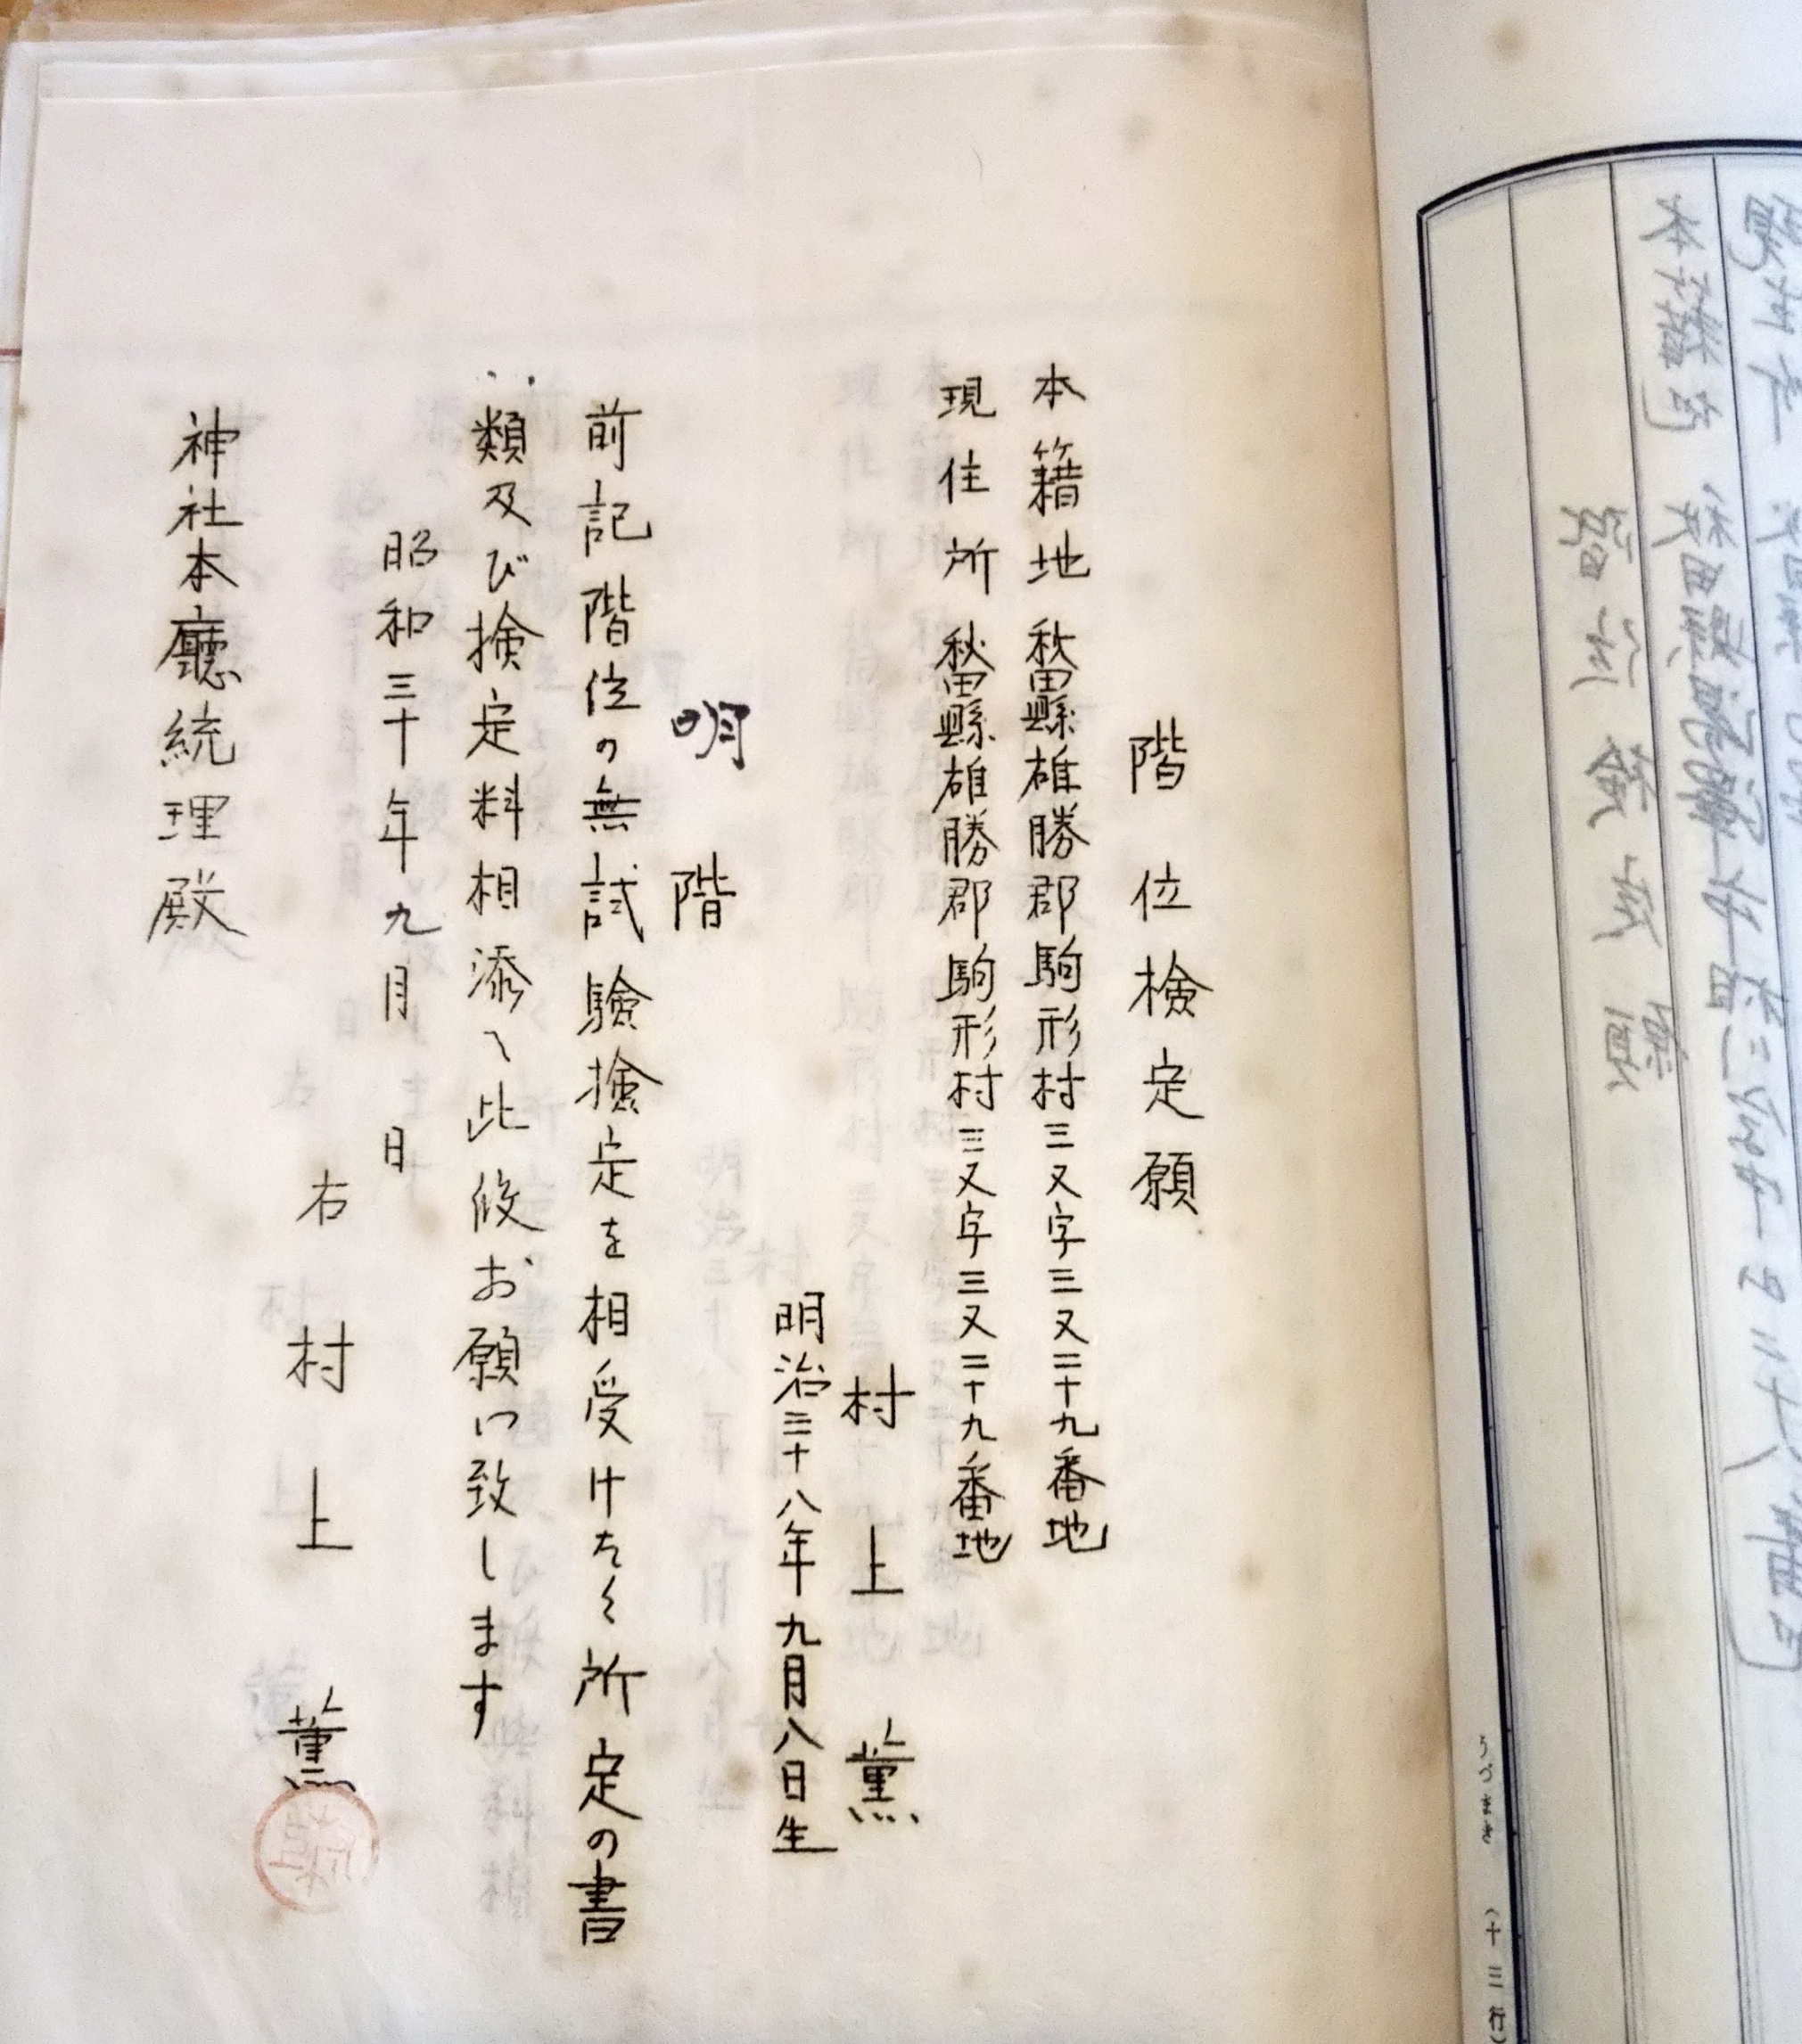 階位検定願
本籍地 秋田縣雄勝郡駒形村三又字三又二十九番地
現住所 秋田縣雄勝郡駒形村三又字三又二十九番地
村上薫
明治三十八年九月八日生
明階
前記階位の無試験検定を相受けたく所定の書
類及び検定料相添へ此段お願い致します
昭和三十年九月 日
右 村上薫
神社本廳統理殿
うづまき (十三行)